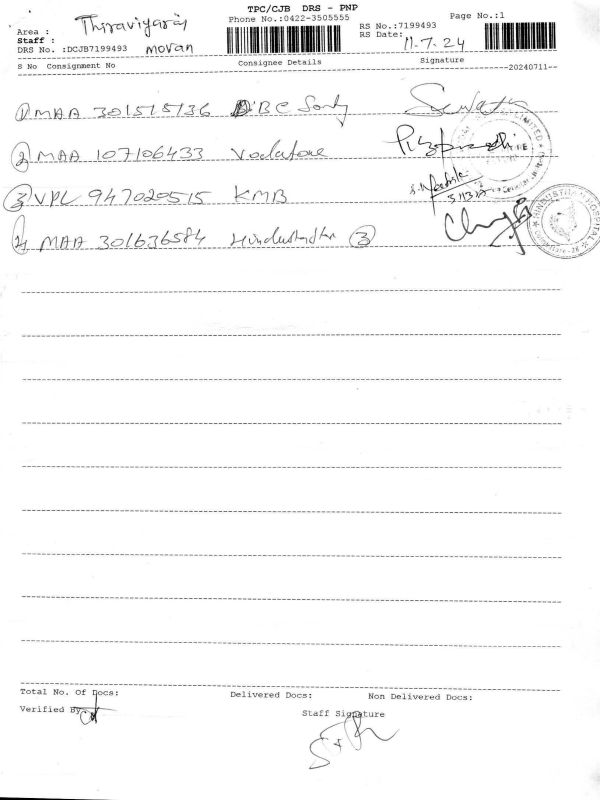 TPC/CJB DRS - PNP
Phone No.:0422-3505555
Page No.:1
Area : Thiraviyaraj
Staff :
RS No.:7199493
RS Date: 11.7.24
DRS No. :DCJB7199493 movan
S No Consignment No Consignee Details Signature
20240711
1 MAA 301515136
2 MAA 107106433 Vodafone
3 VPL 947020515 KMB
4 MAA 301636584 3
HINDUSTHAN HOSPITAL
Total No. Of Docs: Delivered Docs: Non Delivered Docs:
Verified By:
Staff Signature